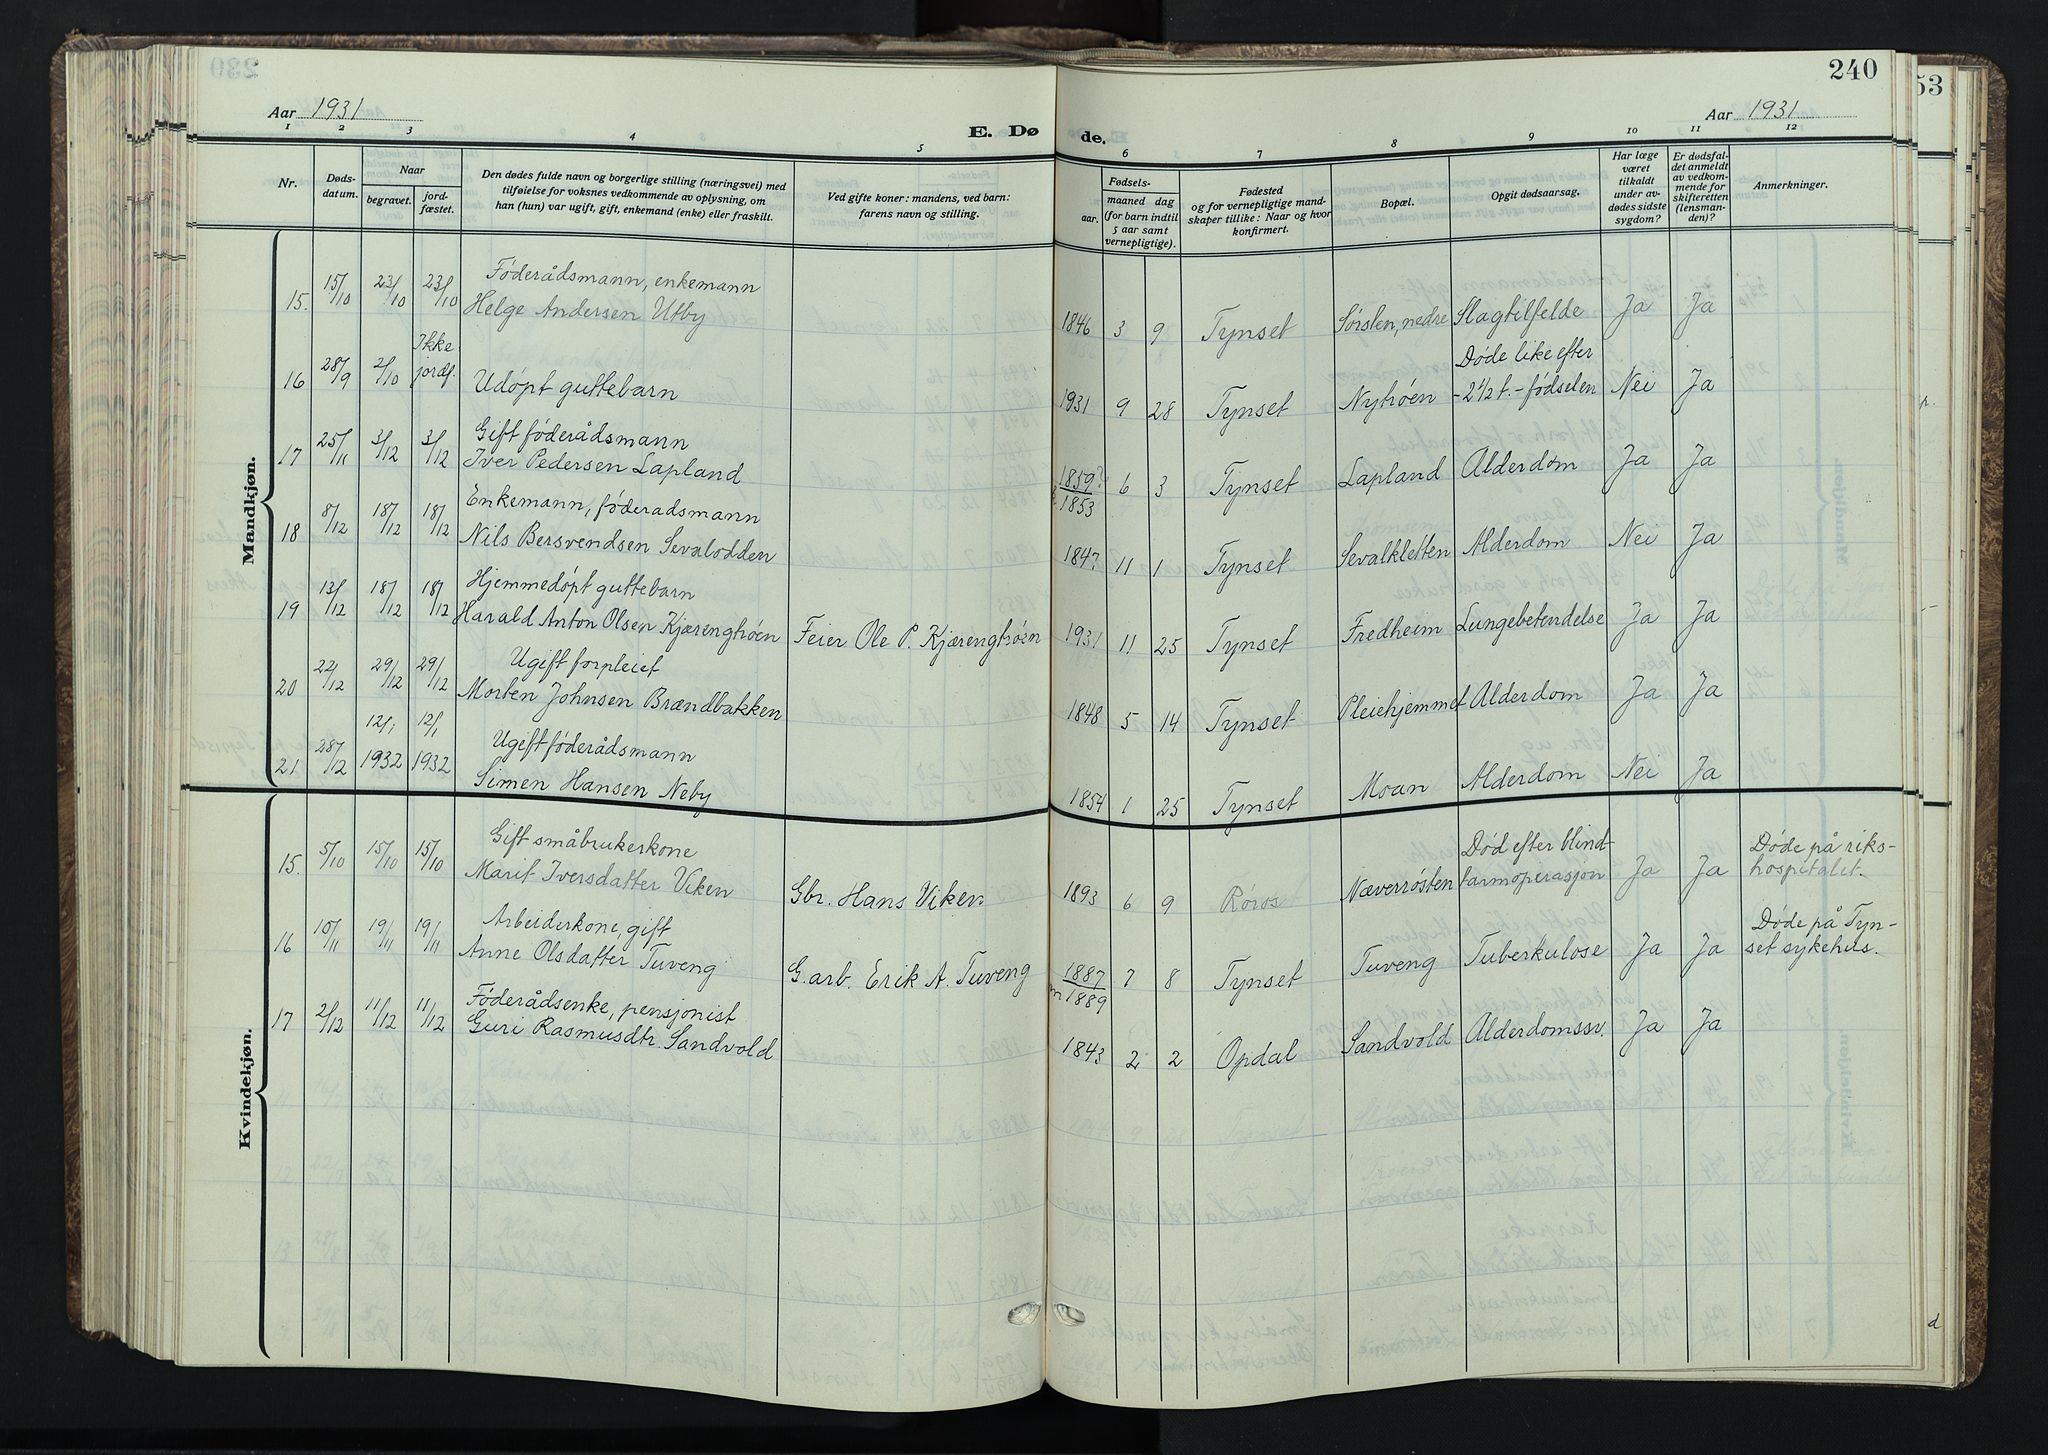 240
53
Aar 1931
E. Døde.
Aar 1931
1 2 3 4 5 6 7 8 9 10 11 12
Nr.
Døds-
datum.
Naar
begravet.
jord-
fæstet.
Den dødes fulde navn og borgerlige stilling (næringsvei) med
tilføielse for voksnes vedkommende av oplysning, om
han (hun) var ugift, gift, enkemand (enke) eller fraskilt.
Ved gifte koner: mandens, ved barn:
farens navn og stilling.
Fødsels-
aar.
maaned dag
(for barn indtil
5 aar samt
vernepligtige).
Fødested
og for vernepligtige mand-
skaper tillike: Naar og hvor
konfirmert.
Bopæl.
Opgit dødsaarsag.
Har læge
været
tilkaldt
under av-
dødes sidste
sygdom?
Er dødsfal-
det anmeldt
av vedkom-
mende for
skifteretten
(lensman-
den)?
Anmerkninger.
Mandkjøn.
15. 15/10 23/10 23/10 Føderådsmann, enkemann
Helge Andersen Utby 1846 3 9 Tynset Sørsten, nedre Slagtilfelde Ja Ja
16 28/9 2/10 Ikke
jordf. Udøpt guttebarn 1931 9 28 Tynset Nytrøen Døde like efter
- 2 1/2 t. - fødselen Nei Ja
17 25/11 3/12 3/12 Gift føderådsmann
Iver Pedersen Lapland 1859?
1853 6 3 Tynset Lapland Alderdom Ja Ja
18 8/12 18/12 18/12 Enkemann, føderadsmann
Nils Bersvendsen Sevalodden 1847 11 1 Tynset Sevalkletten Alderdom Nei Ja
19 13/12 18/12 18/12 Hjemmedøpt guttebarn
Harald Anton Olsen Kjærengtrøen Feier Ole P. Kjærengtrøen 1931 11 25 Tynset Fredheim Lungebetendelse Ja Ja
20 22/12 29/12 29/12 Ugift forpleiet
Morten Johnsen Brændbakken 1848 5 14 Tynset Pleiehjemmet Alderdom Ja Ja
21 28/12 12/1 1932 12/1 1932 Ugift føderådsmann
Simen Hansen Neby 1854 1 25 Tynset Moan Alderdom Nei Ja
Kvindekjøn.
15. 5/10 15/10 15/10 Gift småbrukerkone
Marit Iversdatter Viken Gbr. Hans Viken 1893 6 9 Røros Næverrøsten Død efter blind-
tarmoperasjon Ja Ja Døde på riks-
hospitalet.
16 10/11 19/11 19/11 Arbeiderkone, gift
Anne Olsdatter Tuveng G. arb. Erik A. Tuveng 1887
1889 7 8 Tynset Tuveng Tuberkulose Ja Ja Døde på Tyn-
set sykehus.
17 2/12 11/12 11/12 Føderådsenke, pensjonist
Guri Rasmusdtr. Sandvold 1843 2 2 Opdal Sandvold Alderdomssv. Ja Ja